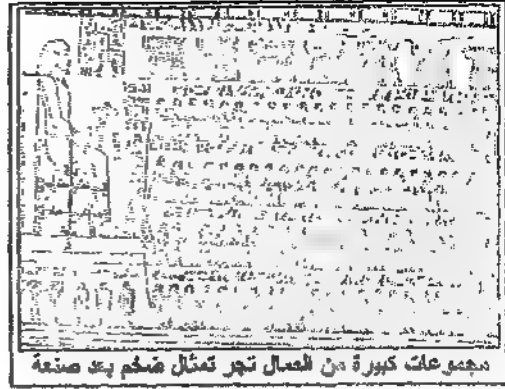 مجموعات كبيرة من العمال تجر تمثال ضخم بعد صنعة